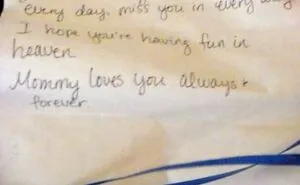 every day. miss you in every way
I hope you're having fun in
heaven
Mommy loves you always +
forever.